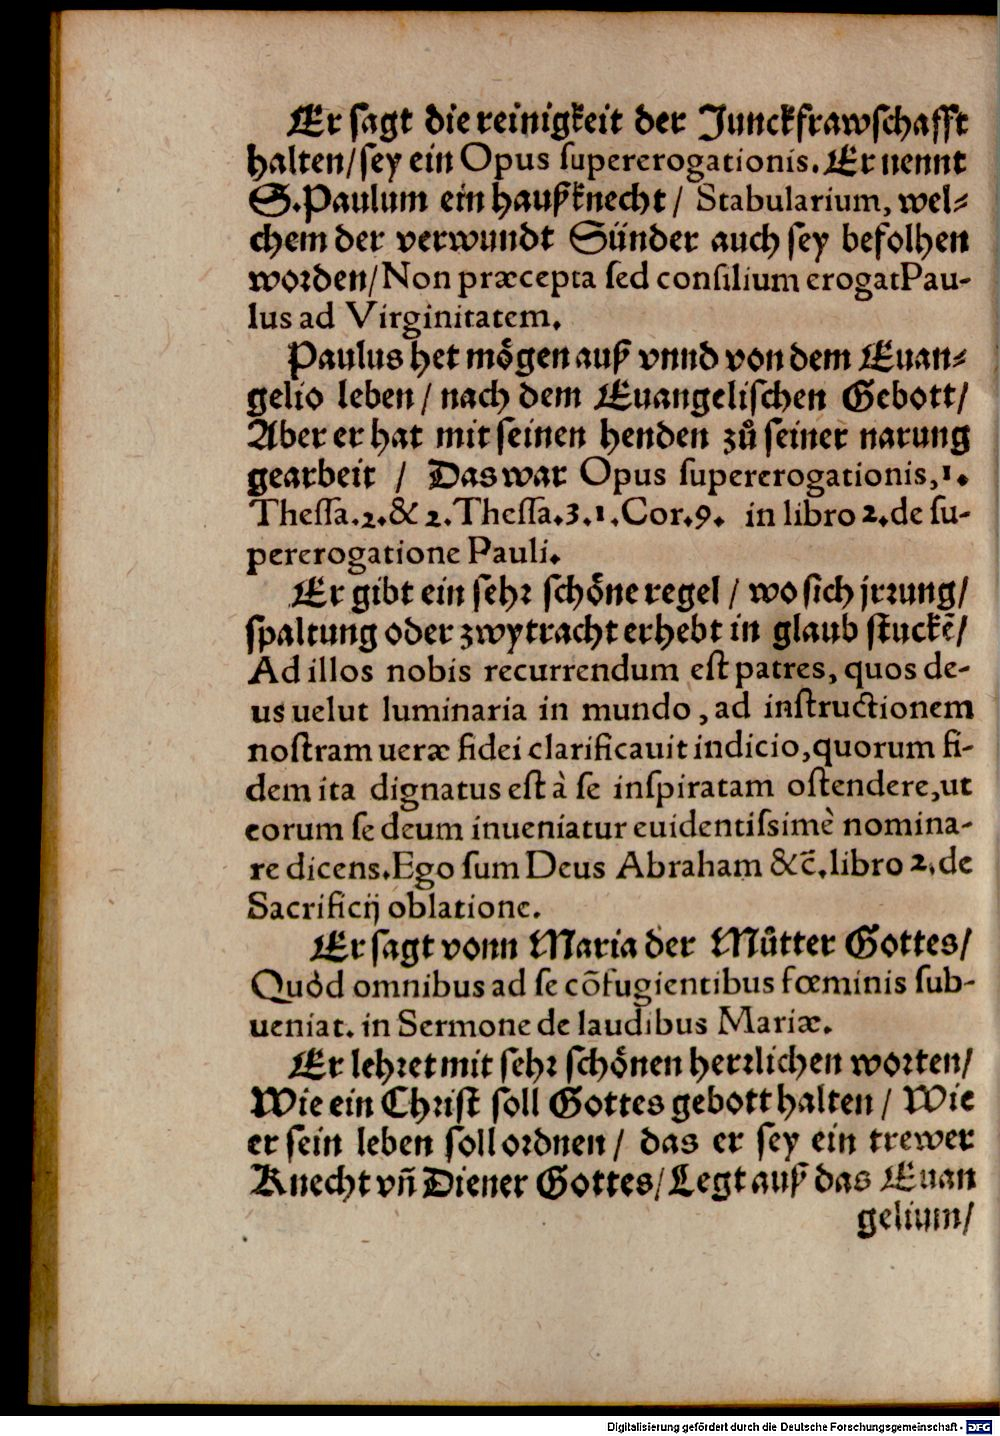 Er sagt die reinigkeit der Junckfrawschafft
halten/ sey ein Opus supererogationis. Er nennt
S. Paulum ein haußknecht / Stabularium, wel-
chem der verwundt Sünder auch sey befolhen
worden/ Non præcepta sed consilium erogat Pau-
lus ad Virginitatem.
Paulus het mögen auß vnnd von dem Euan-
gelio leben / nach dem Euangelischen Gebott/
Aber er hat mit seinen henden zů seiner narung
gearbeit / Das war Opus supererogationis, 1.
Thessa. 2. & 2. Thessa. 3. 1. Cor. 9. in libro 2. de su-
pererogatione Pauli.
Er gibt ein sehr schöne regel / wo sich jrrung/
spaltung oder zwytracht erhebt in glaub stuckẽ/
Ad illos nobis recurrendum est patres, quos de-
us uelut luminaria in mundo, ad instructionem
nostram ueræ fidei clarificauit indicio, quorum fi-
dem ita dignatus est à se inspiratam ostendere, ut
eorum se deum inueniatur euidentissimè nomina-
re dicens. Ego sum Deus Abraham &c̃. libro 2. de
Sacrificij oblatione.
Er sagt vonn Maria der Můtter Gottes/
Quòd omnibus ad se cõfugientibus fœminis sub-
ueniat. in Sermone de laudibus Mariæ.
Er lehret mit sehr schönen herrlichen worten/
Wie ein Christ soll Gottes gebott halten / Wie
er sein leben soll ordnen / das er sey ein trewer
Knecht vñ Diener Gottes/ Legt auß das Euan
gelium/
Digitalisierung gefördert durch die Deutsche Forschungsgemeinschaft - DFG